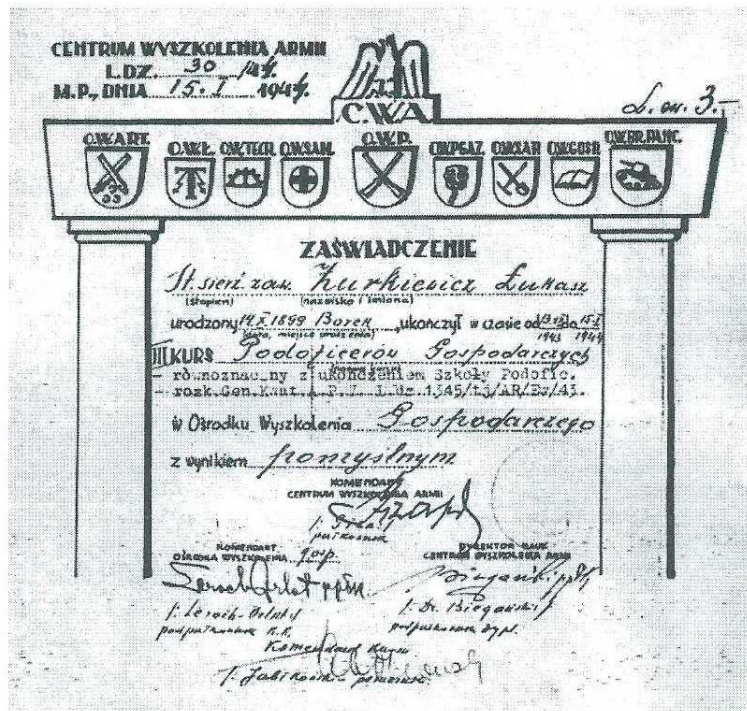 CENTRUM WYSZKOLENIA ARMII
L.DZ. 30 /44
M.P., DNIA 15. I 1944
C.W.A
L. en. 3.-
O.W.ART. O.W.Ł. O.W.TECH. O.W.SAN. O.W.P. O.W.PGAZ. O.W.SAP. O.W.GOSP. O.W.BR.PANC.
ZAŚWIADCZENIE
St. sierż. zaw. Żurkiewicz Łukasz
(stopień) (nazwisko i imiona)
urodzony 14 X 1899 Borek, ukończył w czasie od do 15.I
(data, miejsce urodzenia) 1943 1944
III KURS Podoficerów Gospodarczych
równoznaczny z ukończeniem Szkoły Podofic.
rozk.Gen.Kwat. P.Z. L.Dz 1345/tj/AR/Ew/43.
w Ośrodku Wyszkolenia Gospodarczego
z wynikiem pomyślnym
KOMENDANT
CENTRUM WYSZKOLENIA ARMII
pułkownik
KOMENDANT
OŚRODKA WYSZKOLENIA gosp.
DYREKTOR NAUK
CENTRUM WYSZKOLENIA ARMII
/. Leroch-Orlot /
/. Dr. Biegański /
podpułkownik
podpułkownik dypl.
Komendant Kursu